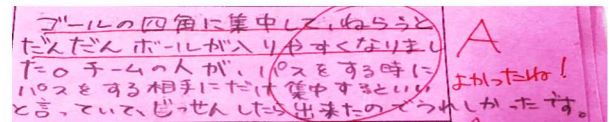 ゴールの四角に集中して、ねらうと
だんだんボールが入りやすくなりまし
た。チームの人が、パスをする時に
パスをする相手にだけ集中するといい
と言っていて、じっせんしたら出来たのでうれしかったです。
A
よかったね!